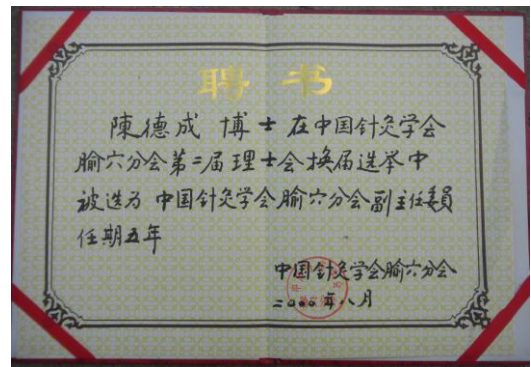 聘书
陳德成 博士 在中国针灸学会
腧穴分会第二届理士会换届选举中
被选为 中国针灸学会腧穴分会副主任委員
任期五年
中国针灸学会腧穴分会
二〇〇〇年八月